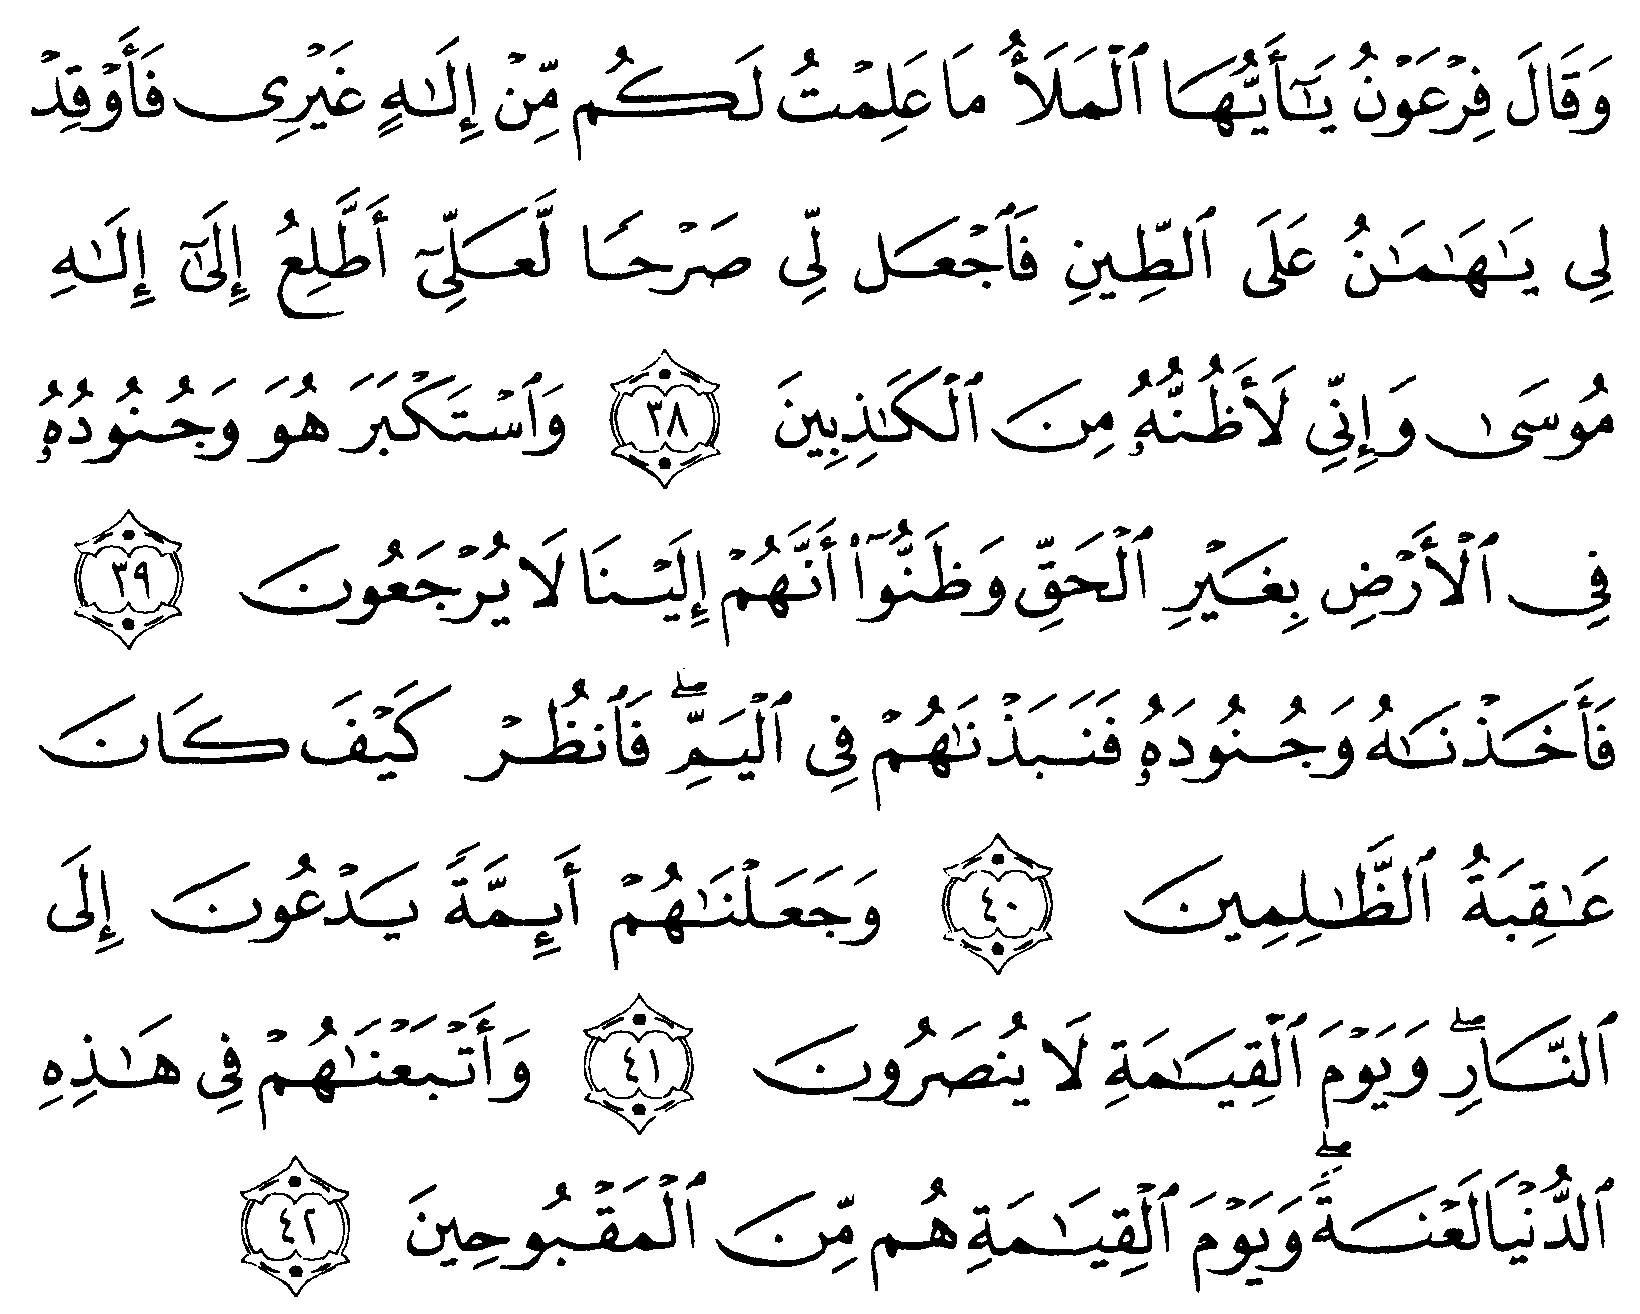 وَقَالَ فِرْعَوْنُ يَـٰٓأَيُّهَا ٱلْمَلَأُ مَا عَلِمْتُ لَكُم مِّنْ إِلَـٰهٍ غَيْرِى فَأَوْقِدْ
لِى يَـٰهَـٰمَـٰنُ عَلَى ٱلطِّينِ فَٱجْعَل لِّى صَرْحًا لَّعَلِّىٓ أَطَّلِعُ إِلَىٰٓ إِلَـٰهِ
مُوسَىٰ وَإِنِّى لَأَظُنُّهُۥ مِنَ ٱلْكَـٰذِبِينَ ٣٨ وَٱسْتَكْبَرَ هُوَ وَجُنُودُهُۥ
فِى ٱلْأَرْضِ بِغَيْرِ ٱلْحَقِّ وَظَنُّوٓا۟ أَنَّهُمْ إِلَيْنَا لَا يُرْجَعُونَ ٣٩
فَأَخَذْنَـٰهُ وَجُنُودَهُۥ فَنَبَذْنَـٰهُمْ فِى ٱلْيَمِّ ۖ فَٱنظُرْ كَيْفَ كَانَ
عَـٰقِبَةُ ٱلظَّـٰلِمِينَ ٤٠ وَجَعَلْنَـٰهُمْ أَئِمَّةً يَدْعُونَ إِلَى
ٱلنَّارِ ۖ وَيَوْمَ ٱلْقِيَـٰمَةِ لَا يُنصَرُونَ ٤١ وَأَتْبَعْنَـٰهُمْ فِى هَـٰذِهِ
ٱلدُّنْيَا لَعْنَةً ۖ وَيَوْمَ ٱلْقِيَـٰمَةِ هُم مِّنَ ٱلْمَقْبُوحِينَ ٤٢